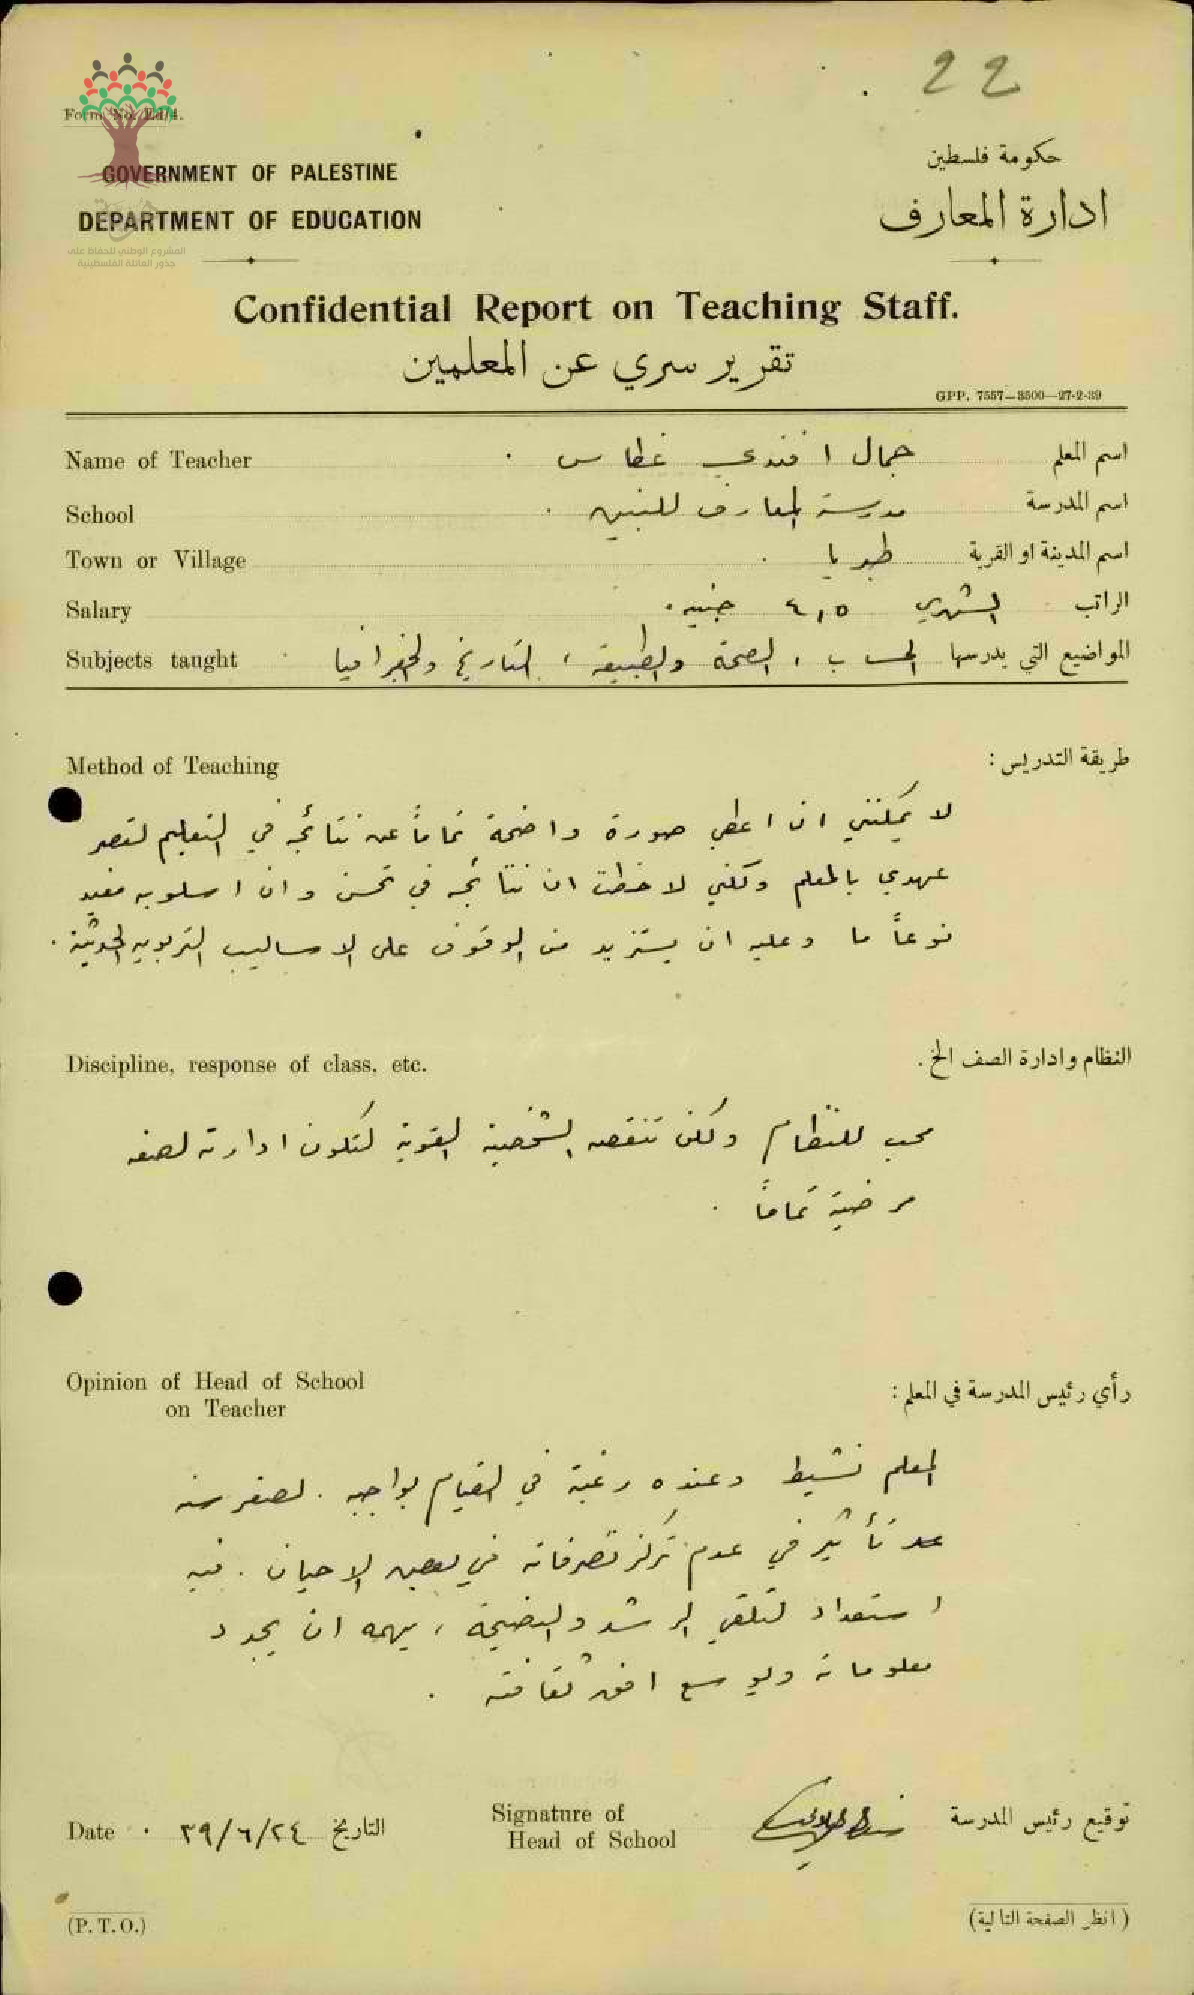 22
Form No. Ed/4.
GOVERNMENT OF PALESTINE
حكومة فلسطين
DEPARTMENT OF EDUCATION
ادارة المعارف
المشروع الوطني للحفاظ على
جذور العائلة الفلسطينية
Confidential Report on Teaching Staff.
تقرير سري عن المعلمين
GPP. 7557—3500—27-2-39
Name of Teacher جمال افندي غطاس . اسم المعلم
School مدرسة المعارف للبنين . اسم المدرسة
Town or Village طبريا . اسم المدينة او القرية
Salary الشهري ٤,٥ جنيه . الراتب
Subjects taught الحساب ، الصحة والطبيعة ، التاريخ والجغرافيا . المواضيع التي يدرسها
Method of Teaching طريقة التدريس :
لا يمكنني ان اعطي صورة واضحة تماماً عن نتائجه في التعليم لقصر
عهدي بالمعلم ولكني لاحظت ان نتائجه في تحسن وان اسلوبه مفيد
نوعاً ما وعليه ان يستزيد من الوقوف على الاساليب التربوية الحديثة .
Discipline, response of class, etc. النظام وادارة الصف الخ .
محب للنظام ولكن تنقصه الشخصية القوية لتكون ادارته لصفه
مرضية تماماً .
Opinion of Head of School
on Teacher
رأي رئيس المدرسة في المعلم :
المعلم نشيط وعنده رغبة في القيام بواجبه . لصغر سنه
تأثير في عدم تركز تصرفاته في بعض الاحيان . فيه
استعداد لتلقي الرشد والنصيحة ، يهمه ان يجدد
معلوماته ويوسع افق ثقافته .
Date ٣٩/٦/٢٤ التاريخ
Signature of
Head of School
توقيع رئيس المدرسة
(P. T. O.)
(انظر الصفحة التالية)